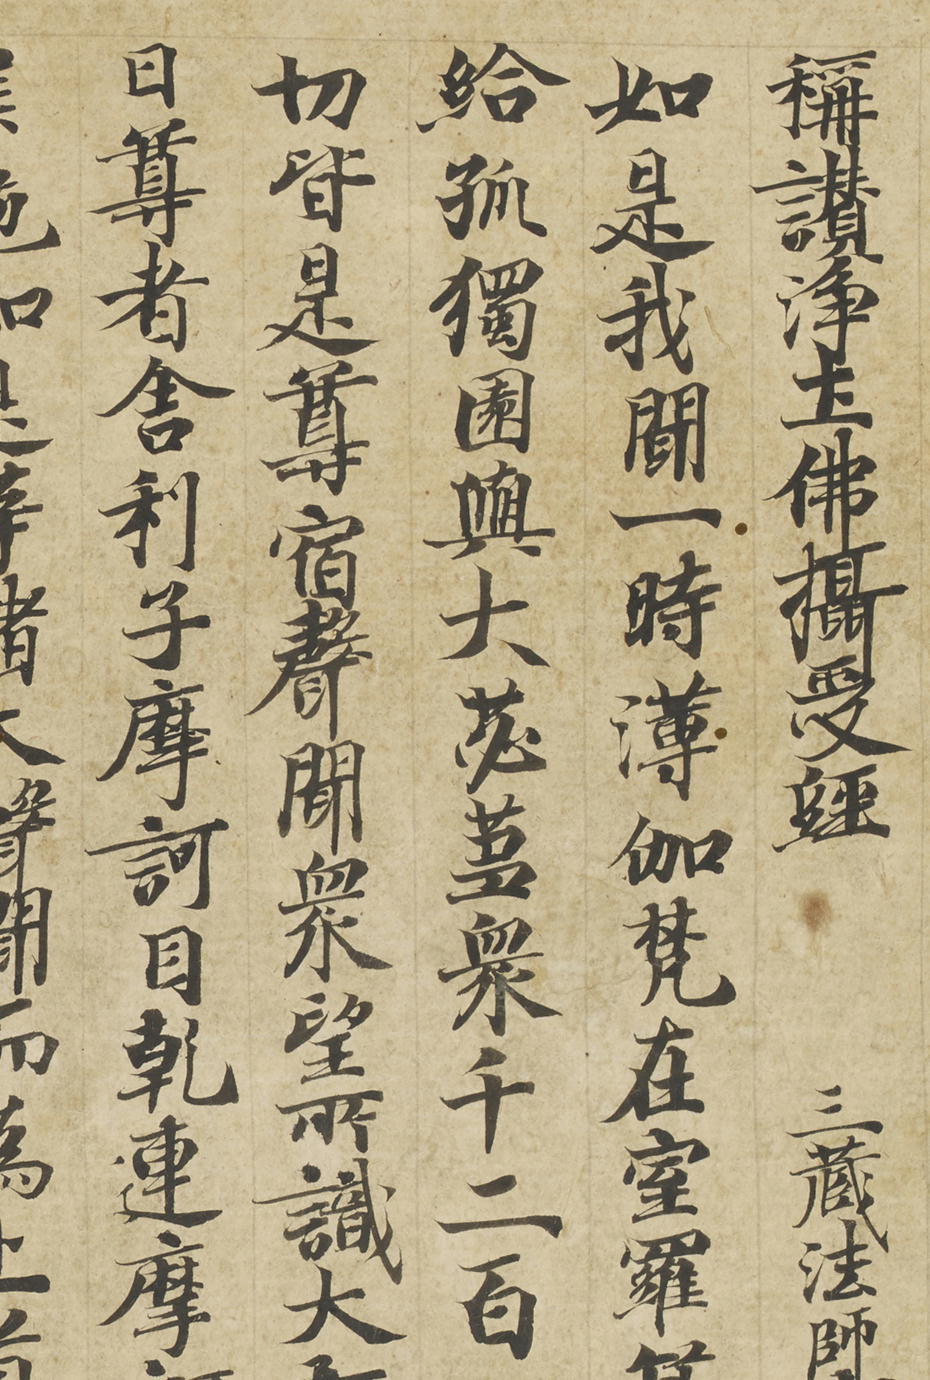 稱讚淨土佛攝受經 三藏法師
如是我聞一時薄伽梵在室羅筏
給孤獨園與大苾芻衆千二百
切皆是尊宿聲聞衆望所識大
曰尊者舍利子摩訶目乾連摩訶
如是等諸大聲聞而爲上首